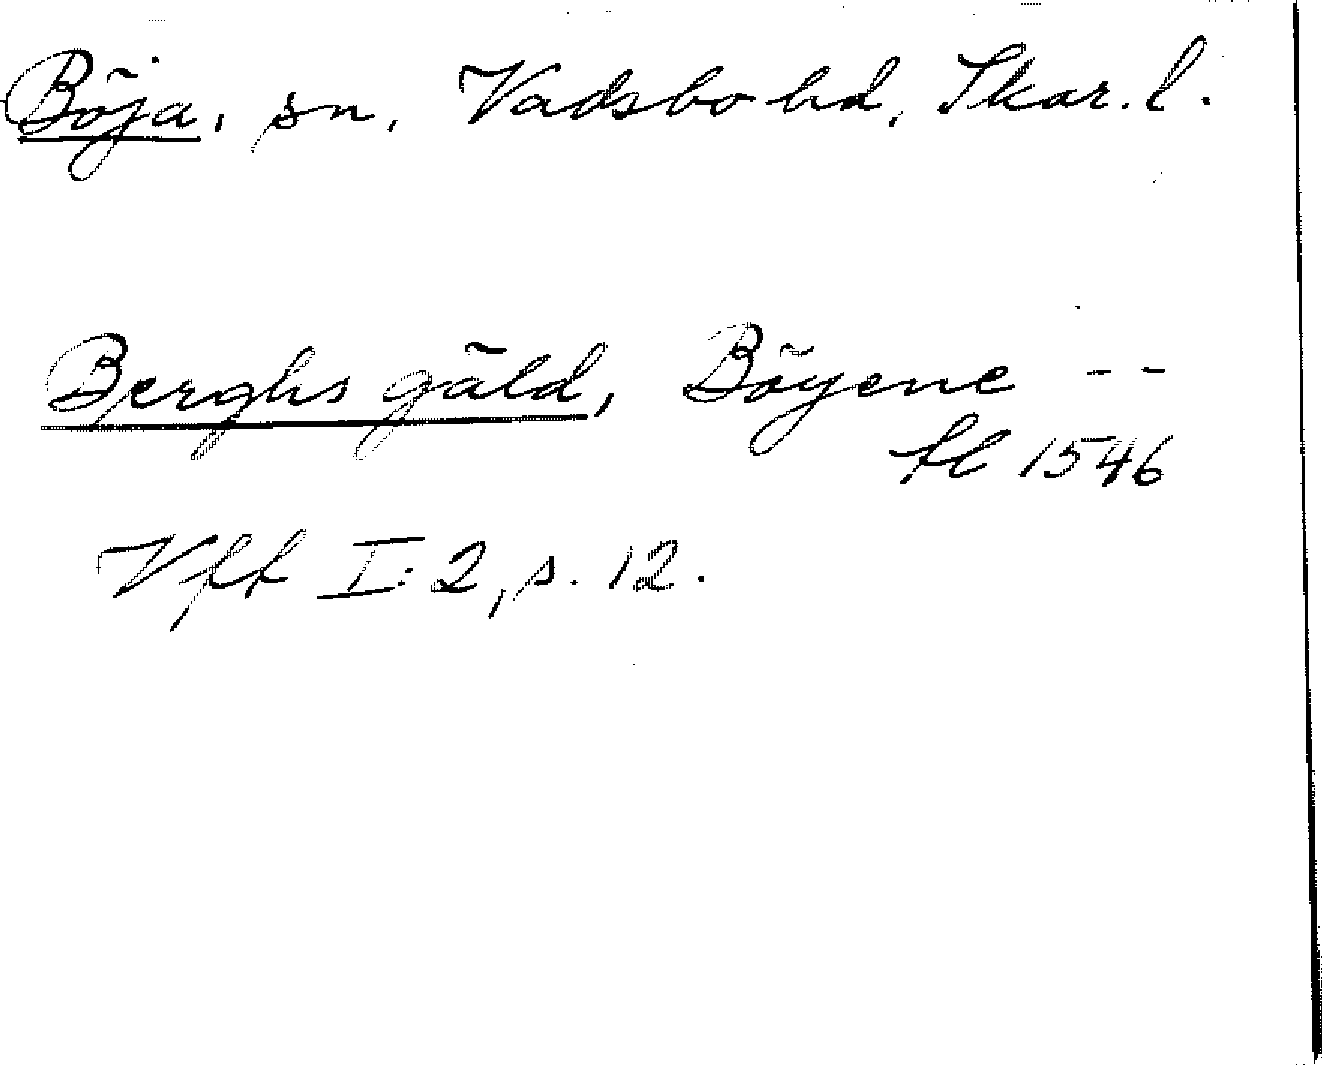 Böja, sn, Vadsbo hd, Skar. l.
Berghs gäld, Böyene --
fl 1546
Vft I:2, s. 12.